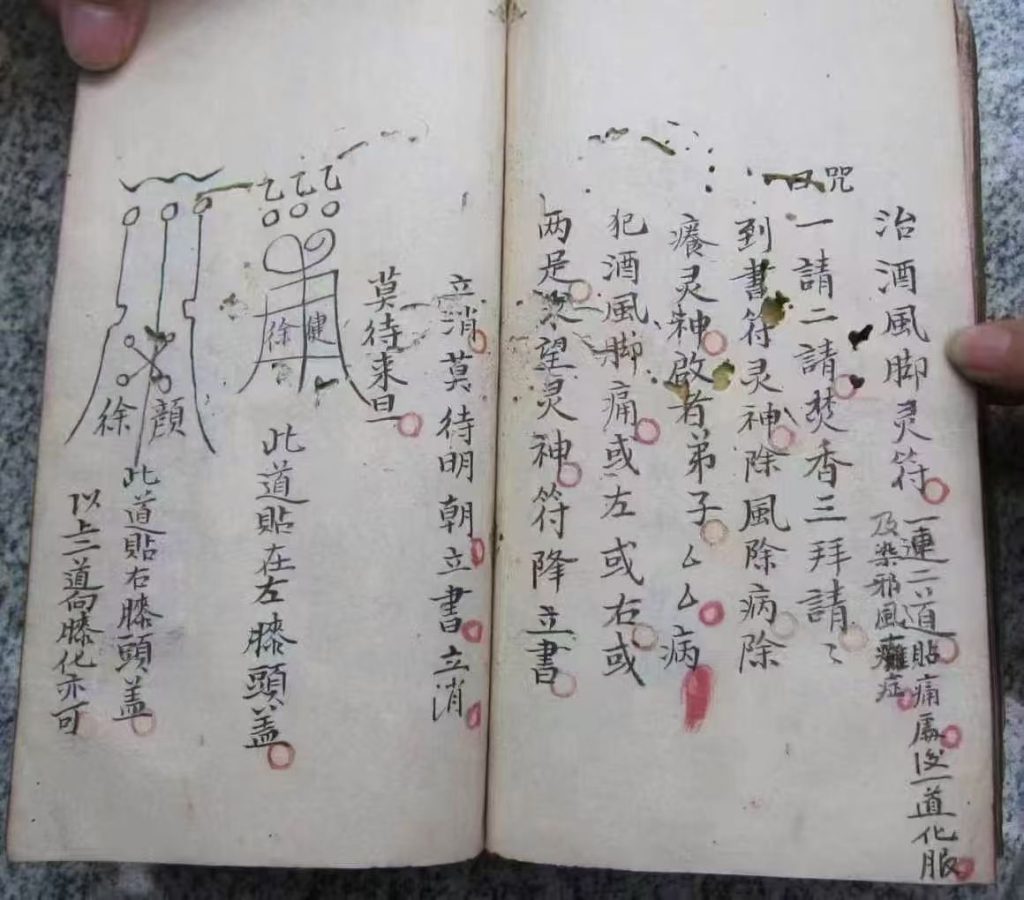 治酒風脚灵符
一連二道貼痛處後一道化服
及染邪風癱症
又咒
一請二請焚香三拜請〻
到書符灵神除風除病除
癢灵神啟者弟子厶厶病
犯酒風脚痛或左或右或
两足 望灵神符降立書
立消莫待明朝立書立消
莫待来旦
乙乙乙
徐健
此道貼在左膝頭盖
徐顔
此道貼右膝頭盖
以上二道向膝化亦可